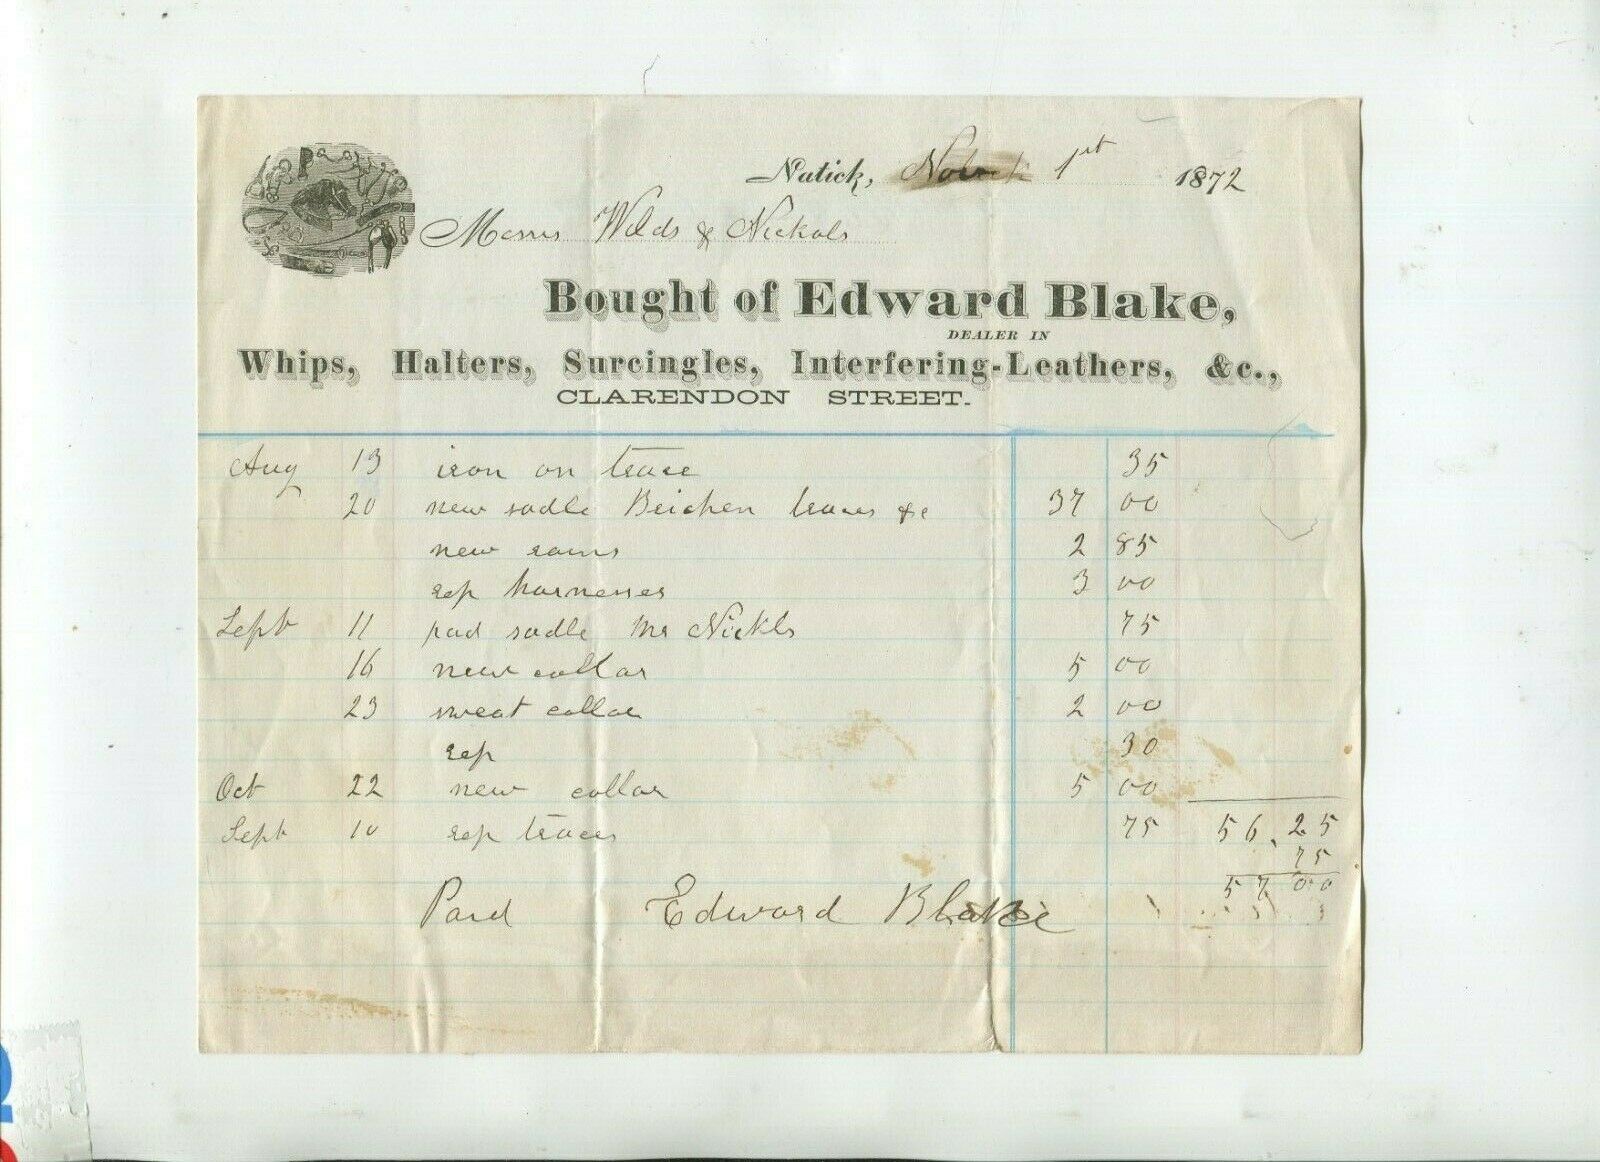 Natick, 1st 1872
Messrs Wilds & Nickols
Bought of Edward Blake,
DEALER IN
Whips, Halters, Surcingles, Interfering-Leathers, &c.,
CLARENDON STREET.
Aug 13 iron on trace 35
20 new sadle traces &c 37 00
new rains 2 85
rep harnesses 3 00
Sept 11 pad sadle Mr Nickls 75
16 new collar 5 00
23 sweat collar 2 00
rep 30
Oct 22 new collar 5 00
Sept 10 rep traces 75 56.25
75
57 00
Paid Edward Blake